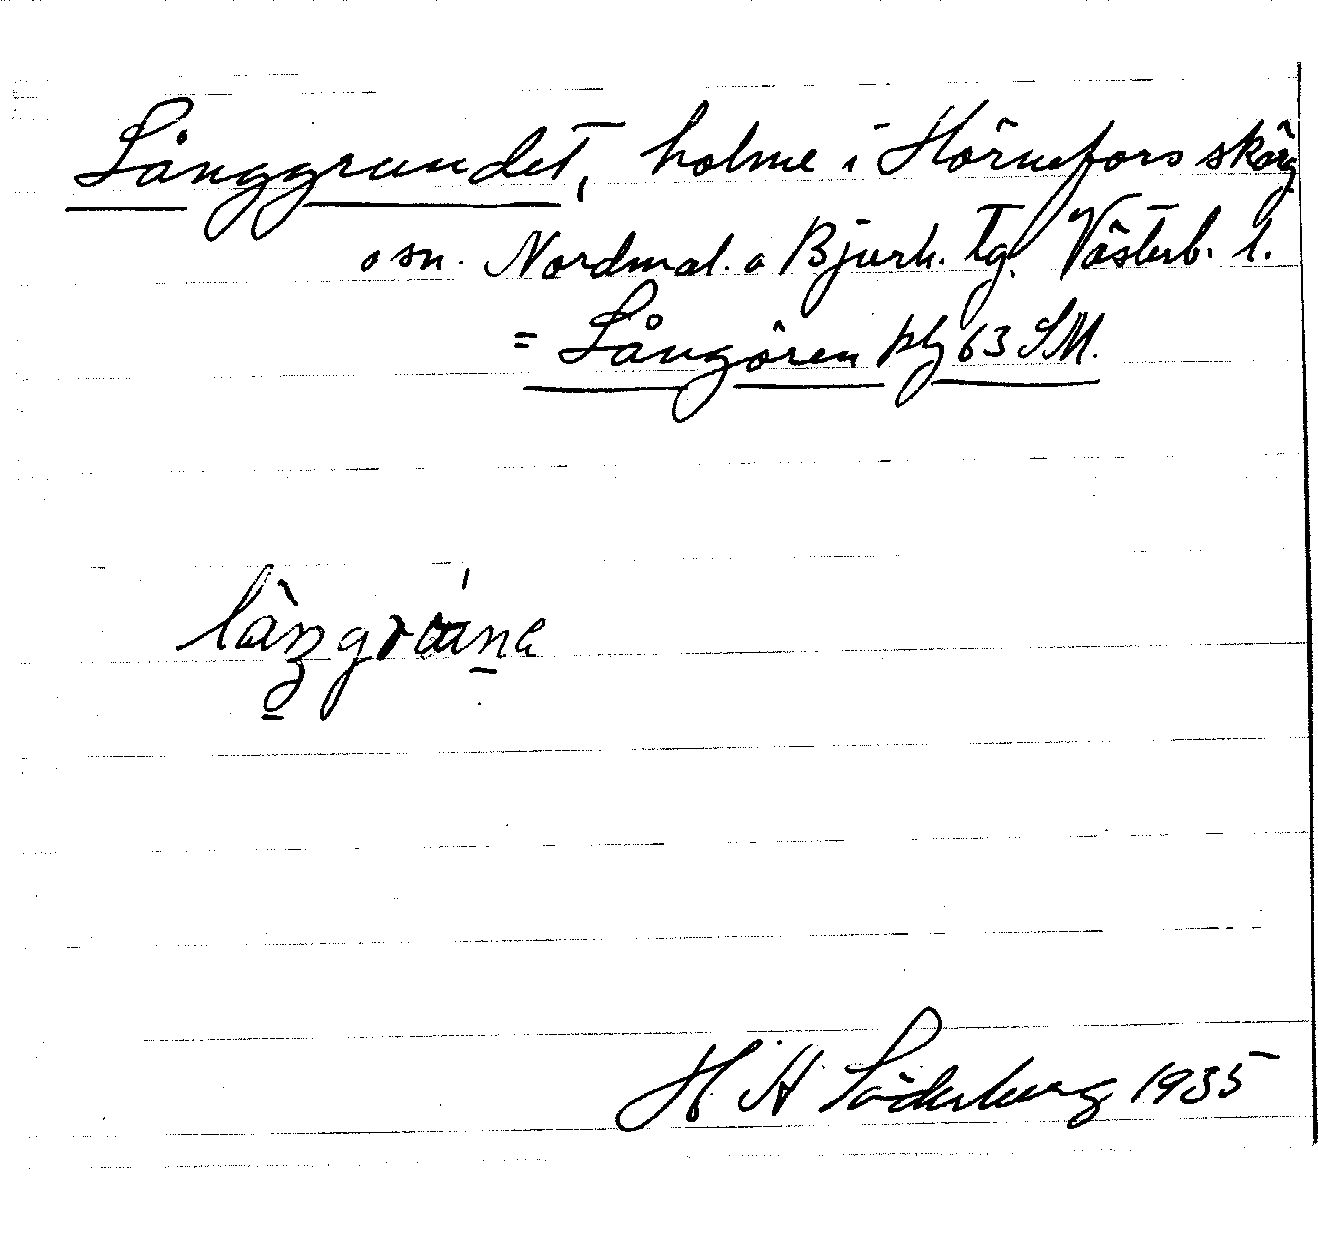 Långgrundet, holme i Hörnefors skärg
o sn. Nordmal. o Bjurh. tg. Västerb. l.
= Långören plg 63 SM.
H A Söderberg 1935